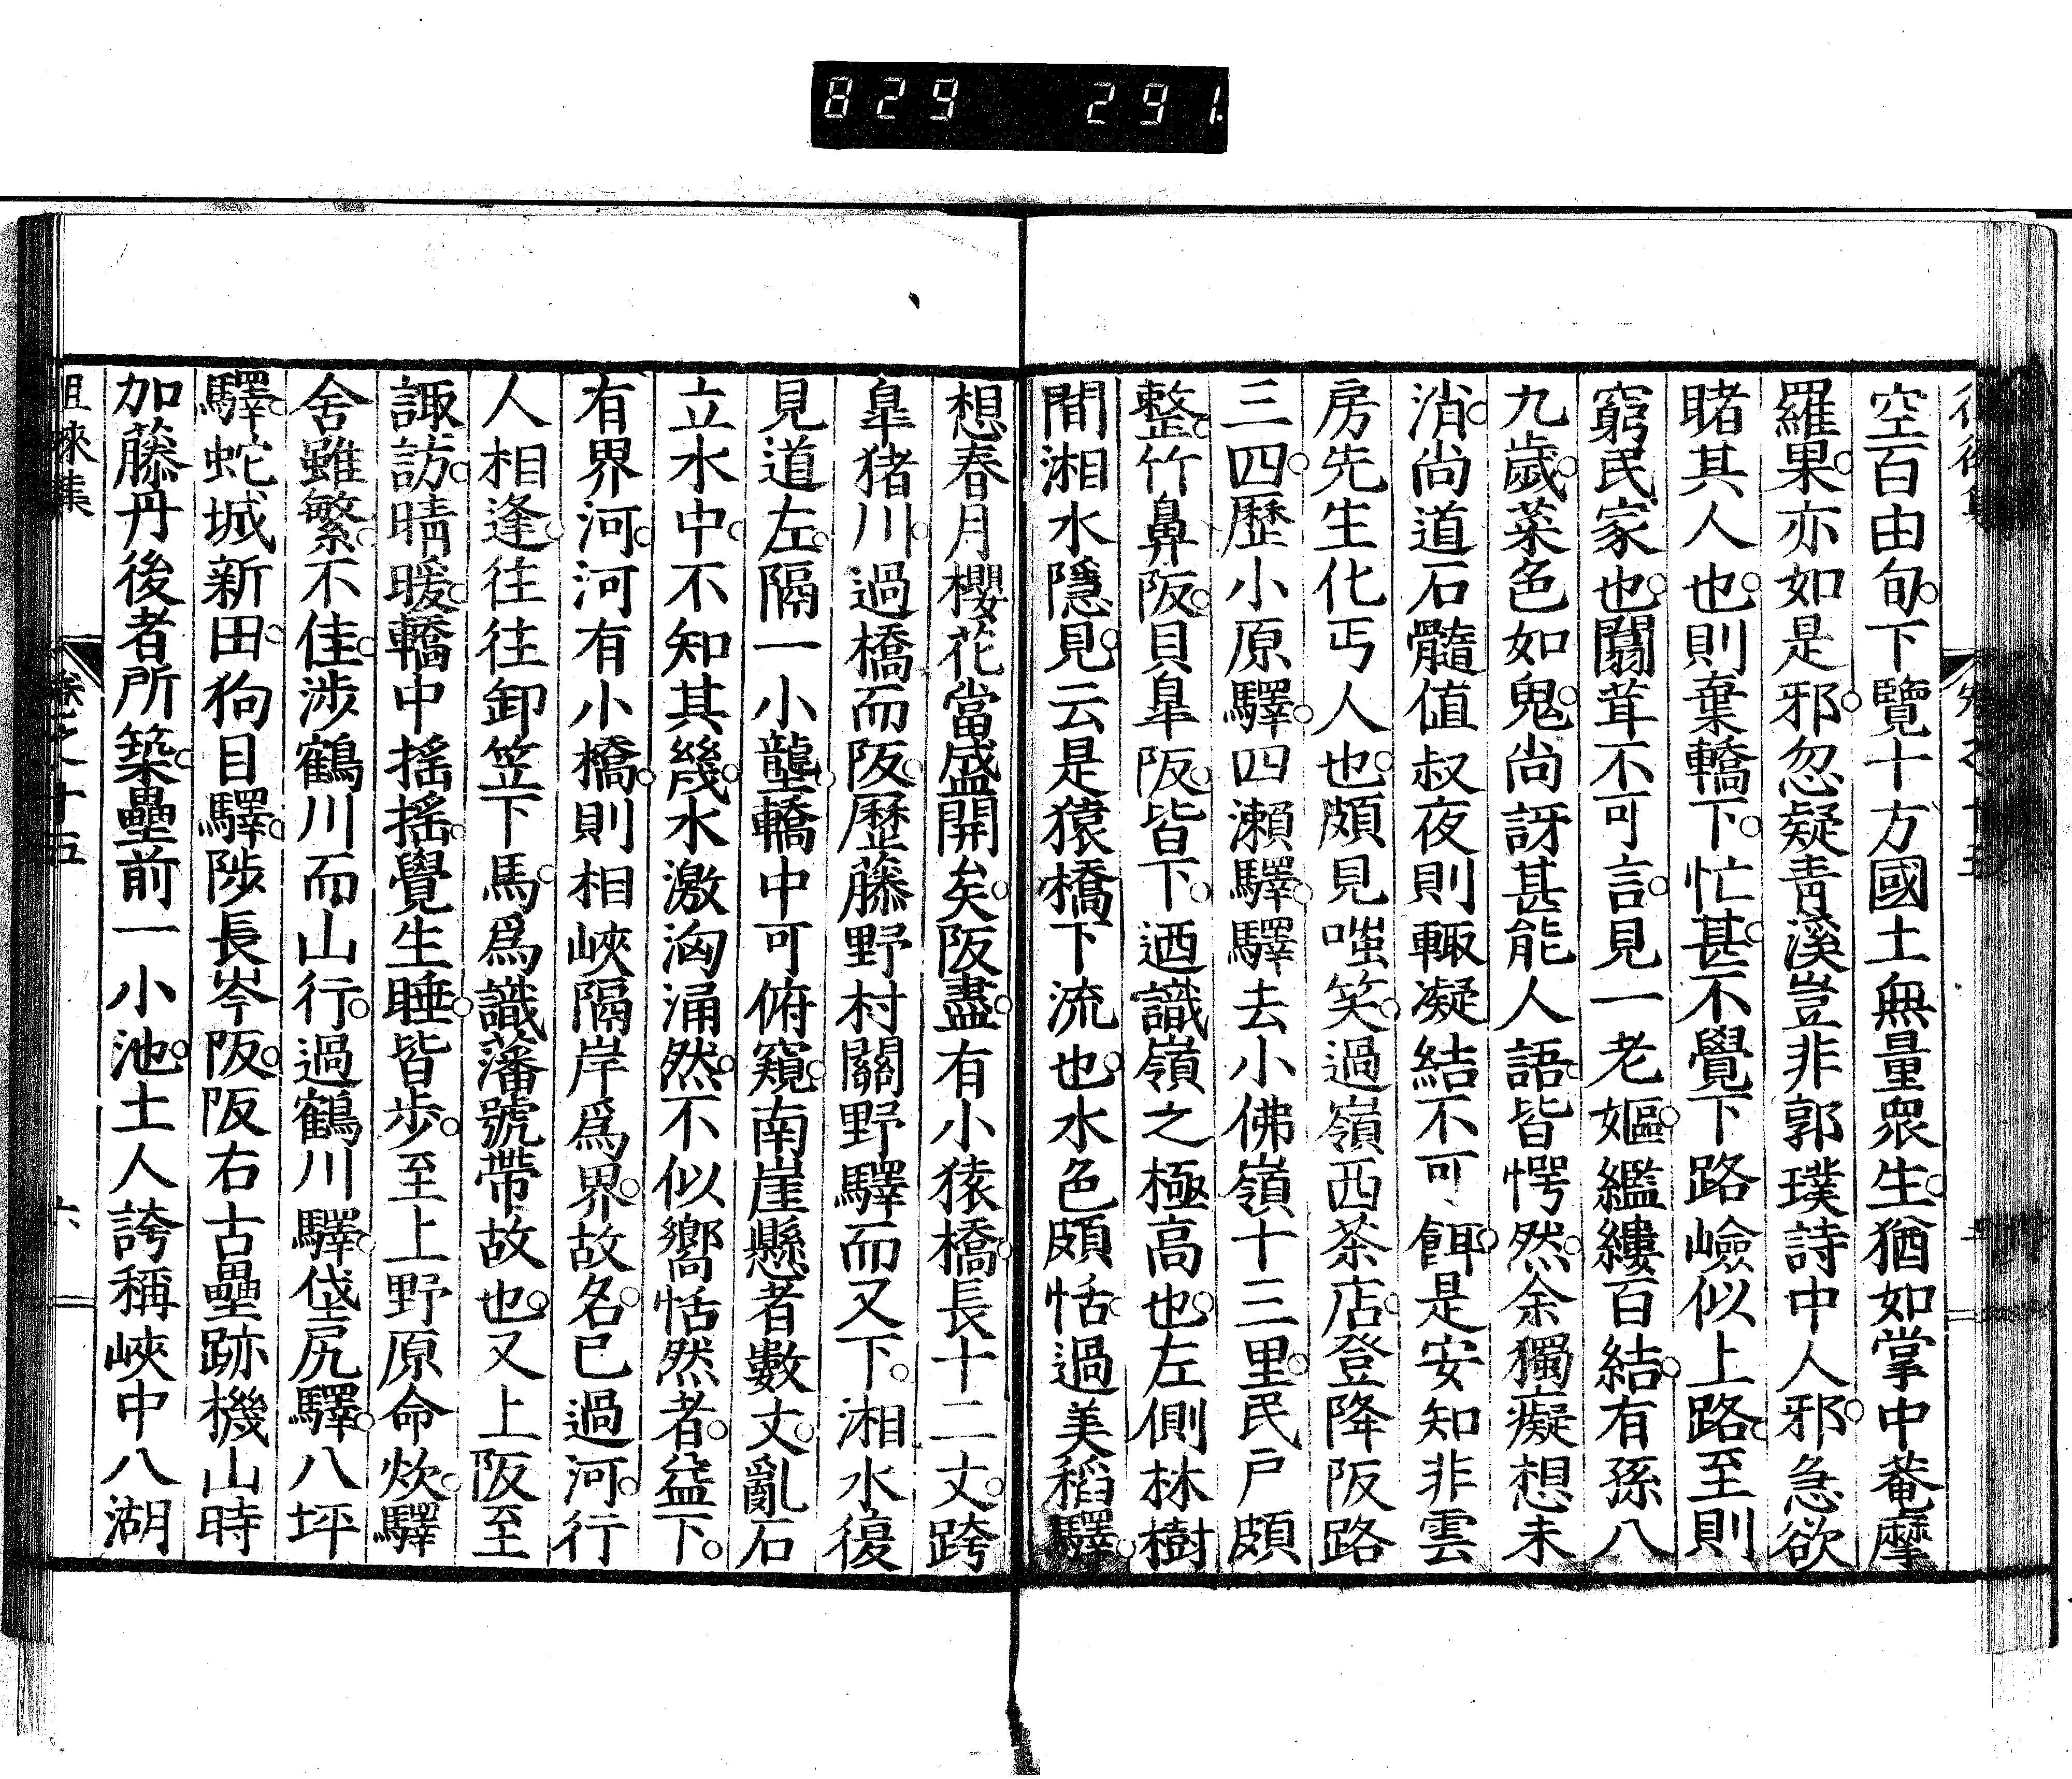 829 291.
空百由旬。下覽十方國土無量衆生。猶如掌中菴摩
羅果。亦如是邪。忽疑青溪豈非郭璞詩中人邪。急欲
睹其人也。則棄轎下。忙甚。不覺下路嶮似上路。至則
窮民家也。闒茸不可言。見一老嫗。繿縷百結。有孫八
九歲。菜色如鬼。尚訝甚能人語。皆愕然。余獨癡想未
消。尚道石髓值叔夜則輒凝結不可餌。是安知非雲
房先生化丐人也。頗見嗤笑。過嶺西茶店。登降阪路
三四。歷小原驛。四瀨驛。驛去小佛嶺十三里。民戶頗
整。竹鼻阪。貝皐阪。皆下。迺識嶺之極高也。左側林樹
間湘水隱見。云是猿橋下流也。水色頗恬。過美稻驛。
想春月櫻花當盛開矣。阪盡。有小猿橋。長十二丈。跨
皐猪川。過橋而阪。歷藤野村關野驛而又下。湘水復
見道左。隔一小壟。轎中可俯窺。南崖懸者數丈。亂石
立水中。不知其幾。水激洶涌然。不似嚮恬然者。益下。
有界河。河有小橋。則相峽隔岸爲界。故名。已過河。行
人相逢。往往卸笠下馬。爲識藩號帶故也。又上阪至
諏訪。晴暖。轎中搖搖。覺生睡。皆步。至上野原命炊。驛
舍雖繁。不佳。涉鶴川而山行。過鶴川驛。垈尻驛。八坪
驛。蛇城新田。狗目驛。陟長岑阪。阪右古壘跡。機山時
加藤丹後者所築。壘前一小池。土人誇稱峽中八湖
徂徠集 卷之十五 六